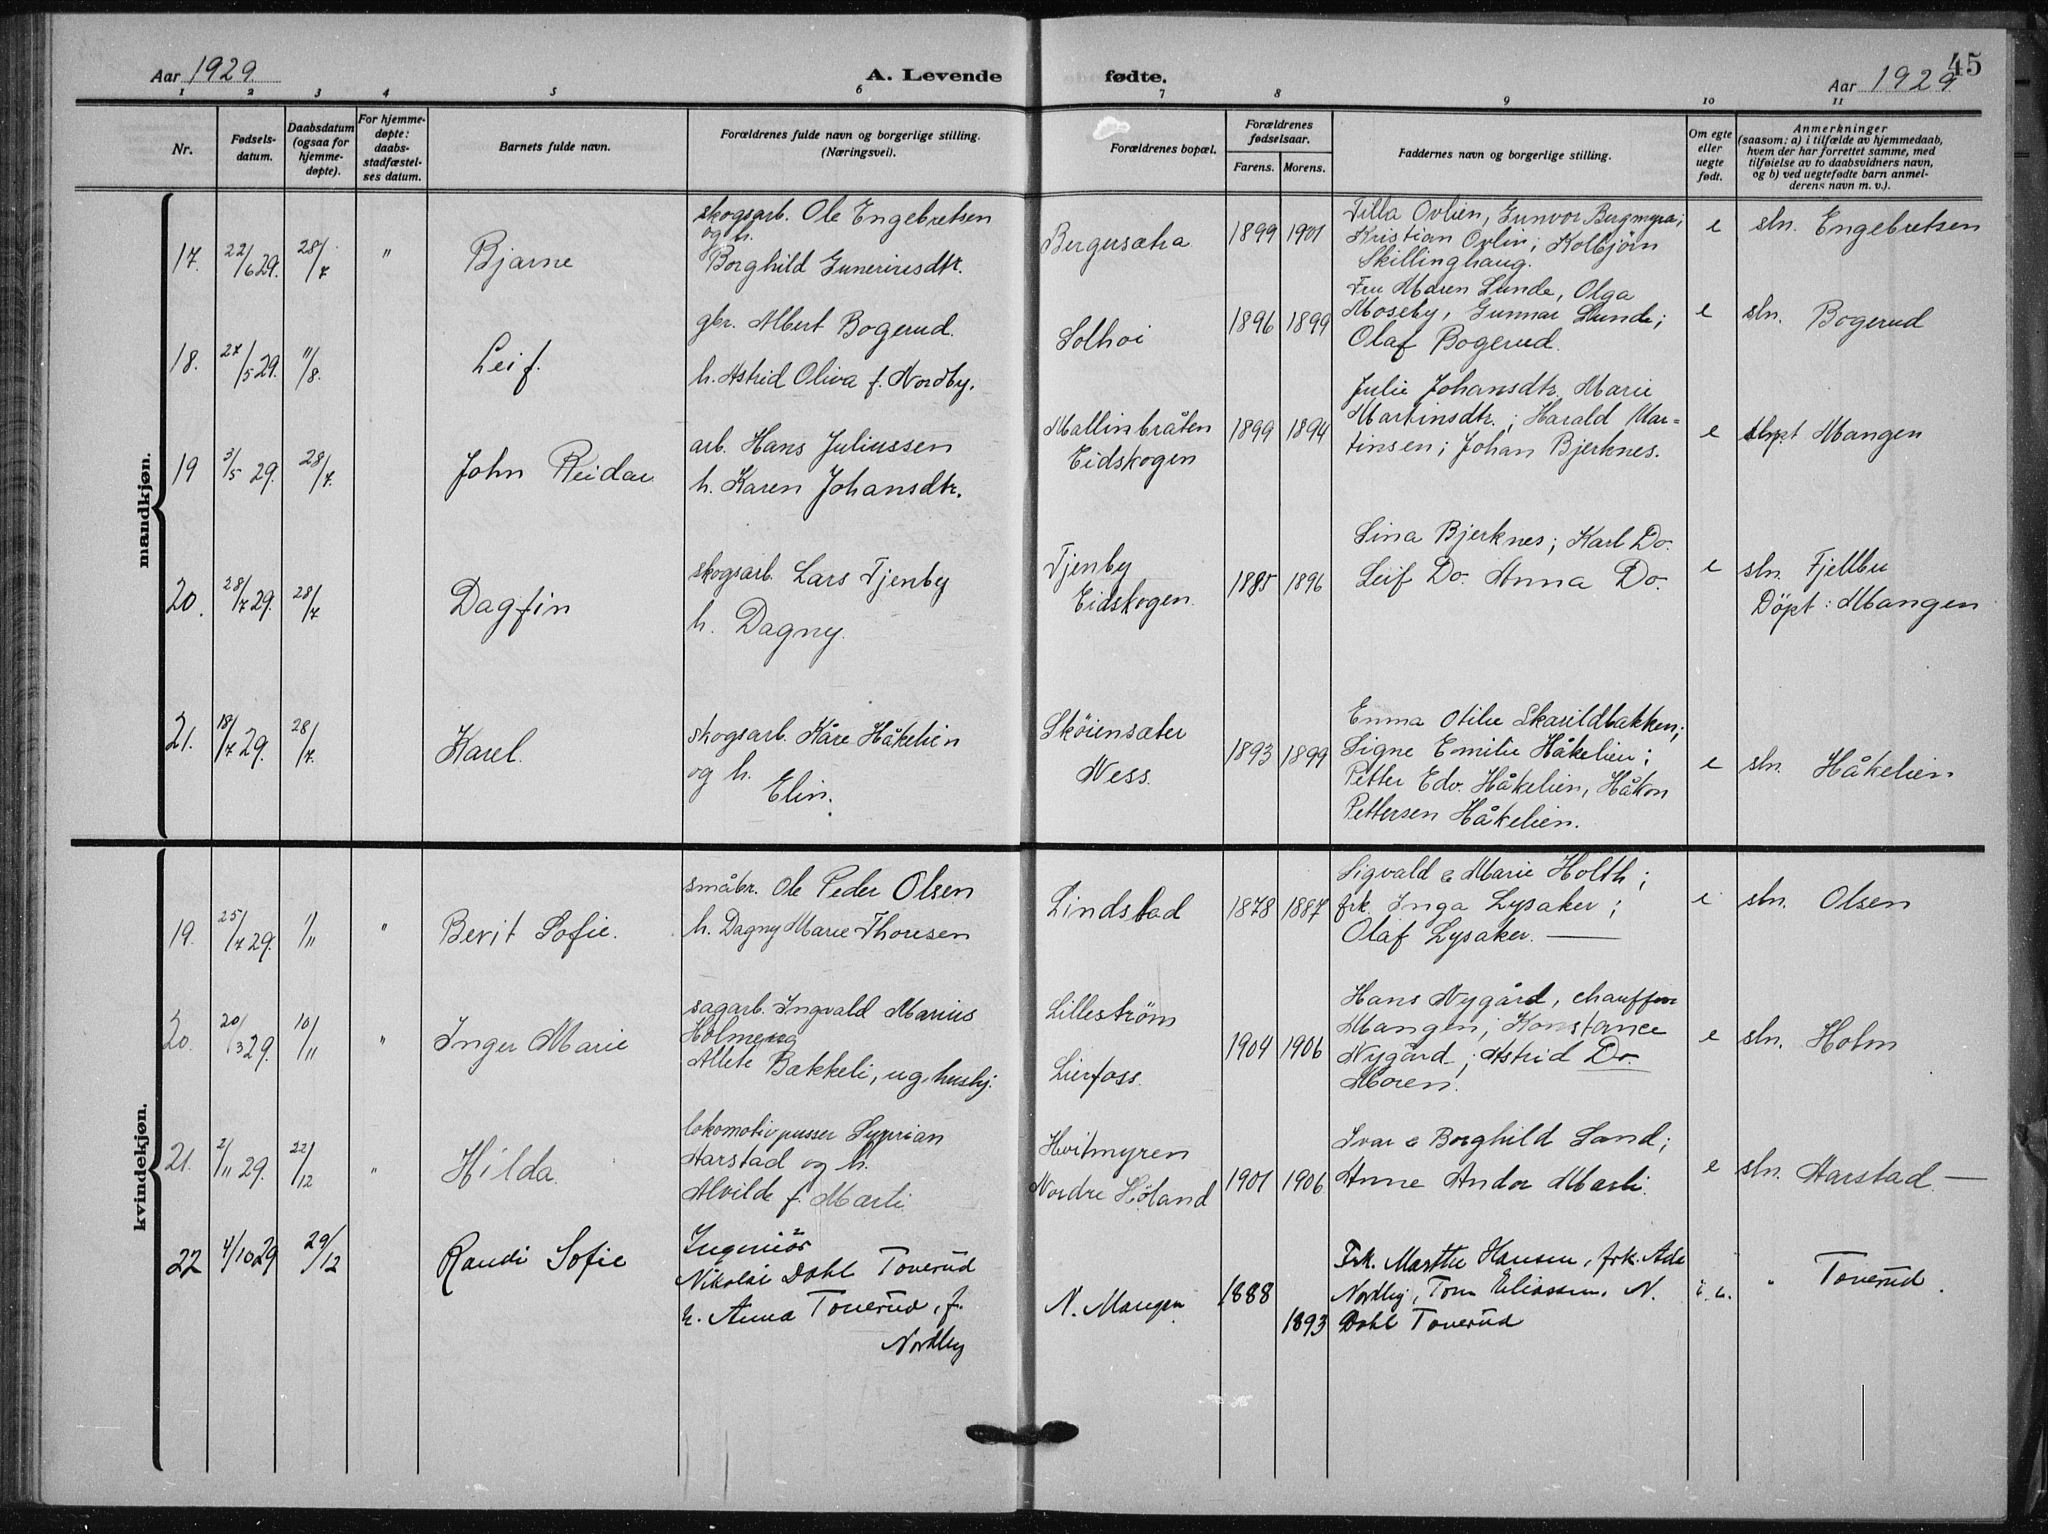 Aar 1929.
A. Levende fødte.
Aar 1929
45
1 2 3 4 5 6 7 8 9 10 11
Nr.
Fødsels-
datum.
Daabsdatum
(ogsaa for
hjemme-
døpte).
For hjemme-
døpte:
daabs-
stadfæstel-
ses datum.
Barnets fulde navn.
Forældrenes fulde navn og borgerlige stilling.
(Næringsvei).
Forældrenes bopæl.
Forældrenes
fødselsaar.
Farens. Morens.
Faddernes navn og borgerlige stilling.
Om egte
eller
uegte
født.
Anmerkninger
(saasom: a) i tilfælde av hjemmedaab,
hvem der har forrettet samme, med
tilføielse av to daabsvidners navn,
og b) ved uegtefødte barn anmel-
derens navn m. v.).
mandkjøn.
17. 22/6 29. 28/7 " Bjarne
skogsarb. Ole Engebretsen
og h.
Borghild Gunerius​dtr.
Bergersætra 1899 1901
Tilla Ovlien, Gunvor Bergmyra;
Kristian Ovlin; Kolbjørn
Skillinghaug.
e sln. Engebretsen
18. 27/5 29. 11/8. Leif.
gbr. Albert Bogerud.
h. Astrid Oliva f. Nordby.
Solhoi 1896 1899
Fru Maren Lunde, Olga
Moseby, Gunnar Lunde;
Olaf Bogerud.
e sln. Bogerud
19 3/5 29. 28/7. John Reidar.
arb. Hans Juliussen
h. Karen Johansdtr.
Mallinbråten
Eidskogen
1899 1894
Julie Johansdtr. Marie
Martinsdtr.; Harald Mar-
tinsen; Johan Bjerknes.
e Mangen
20. 28/7 29. 28/7 Dagfin
skogsarb. Lars Tjenby
h. Dagny.
Tjenby
Eidskogen.
1885 1896
Lina Bjerknes; Karl Do.
Leif Do. Anna Do.
e sln. Fjellbu
Döpt: Mangen
21. 18/7 29. 28/7. Karel.
skogsarb. Kåre Håkelien
og h.
Elin.
Skøiensæter
Ness.
1893 1899
Emma Otilie Skarildbakken;
Signe Emilie Håkelien;
Petter Edv. Håkelien, Håkon
Pettersen Håkelien.
e sln. Håkelien
kvindekjøn.
19. 25/7 29. 1/11 " Berit Sofie.
småbr. Ole Peder Olsen
h. Dagny Marie Thoresen
Lindstad 1878 1887
Sigvald & Marie Holth;
frk. Inga Lysaker;
Olaf Lysaker. —
e sln. Olsen
20. 20/3 29. 10/11 " Inger Marie
sagarb. Ingvald Marius
Holm og
Allete Bakkeli, ug. hushj.
Lilleström
Lierfoss.
1904 1906
Hans Nygård, chauffør
Mangen; Konstance
Nygård; Astrid Do.
Moren.
e sln. Holm
21. 2/11 29. 22/12 " Hilda.
lokomotivpusser Syprian
Aarstad og h.
Alvilde f. Marli.
Hvitmyren
Nordre Høland
1901 1906
Ivar & Borghild Sand;
Anne Andor Marli.
e sln. Aarstad —
22 4/10 29 29/12 Randi Sofie
Ingeniör
Nikolai Dahl Toverud
h. Anna Toverud, f.
Nordby
N. Mangen 1888
1893
Frk. Marthe Hansen, frk. Ada
Nordby, Tom Eliassen, N.
Dahl Toverud
" Toverud.